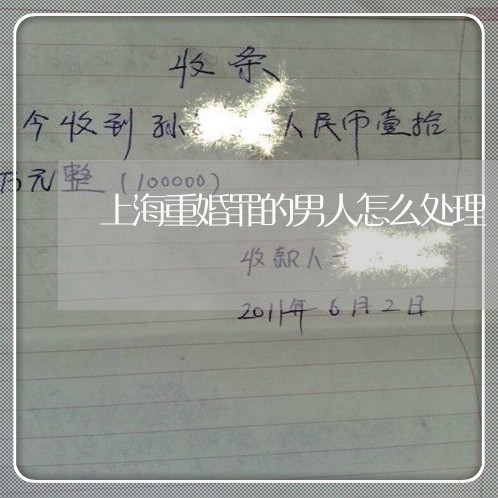 收条
今收到孙 人民币壹拾
万元整（100000）
上海重婚罪的男人怎么处理
收款人
2011年6月2日